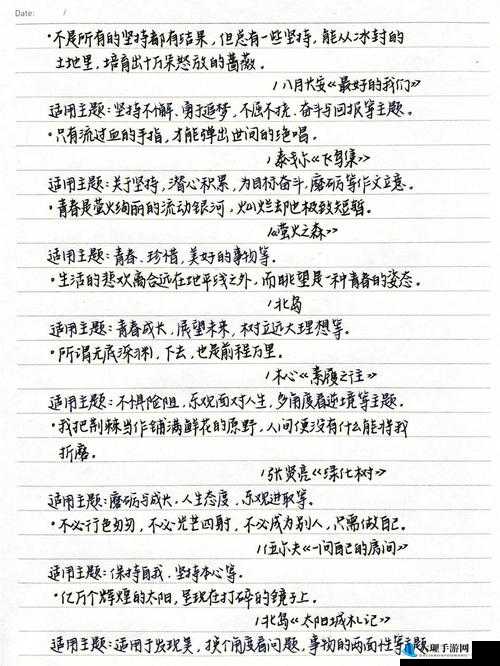 Date: /
·不是所有的坚持都有结果,但总有一些坚持,能从冰封的
土地里,培育出十万朵怒放的蔷薇。
八月长安《最好的我们》
适用主题:坚持不懈、勇于追梦,不屈不挠、奋斗与回报等主题。
·只有流过血的手指,才能弹出世间的绝唱。
泰戈尔《飞鸟集》
适用主题:关于坚持,潜心积累,为目标奋斗,磨砺等作文立意。
·青春是萤火绚丽的流动银河,灿烂却也极致短暂。
《萤火之森》
适用主题:青春、珍惜,美好的事物等。
·生活的悲欢离合远在地平线之外,而眺望是一种青春的姿态。
北岛
适用主题:青春成长,展望未来,树立远大理想等。
·所谓无底深渊,下去,也是前程万里。
木心《素履之往》
适用主题:不惧险阻,乐观面对人生,多角度看逆境等主题。
·我把荆棘当作铺满鲜花的原野,人间便没有什么能将我
折磨。
张贤亮《绿化树》
适用主题:磨砺与成长,人生态度,乐观进取等。
·不必行色匆匆,不必光芒四射,不必成为别人,只需做自己。
伍尔夫《一间自己的房间》
适用主题:保持自我、坚持本心等。
·亿万个辉煌的太阳,呈现在打碎的镜子上。
北岛《太阳城札记》
适用主题:适用于发现美,换个角度看问题,事物的两面性等主题
手游网